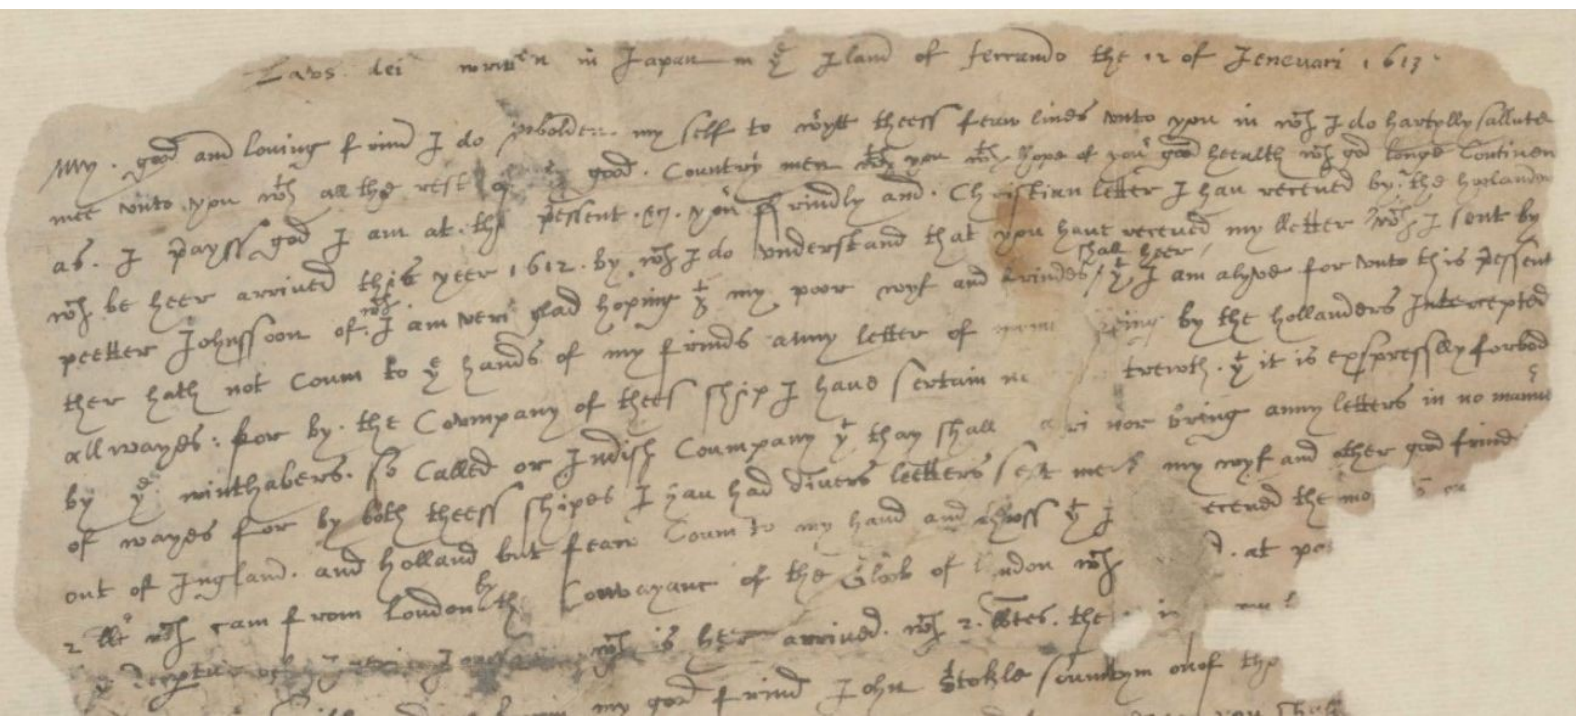 Laos dei written in Japan in ye Iland of ferrando the 12 of Jenevari 1613
My good and loving frind I do imbolden my self to wryt theess feaw lines vnto you in wch I do hartylly sallute
mee vnto you wth all the rest of good Country men wth you wth hope of your good heealth wch god longe continew
as I prayss god I am at the pressent your frindly and Christian letter I hau receued by the hollanders
wch be heer arriued this yeer 1612 by wch I do vnderstand that you haue receued my letter wch I sent by
shall heer
peetter Johnssoon of wch I am veri glad hoping yt my poor wyf and frindes yt I am alyue for vnto this pressent
ther hath not Coum to ye hands of my frinds anny letter of being by the hollanders Intercepted
allwayes for by the Coumpany of thees ship I haue sertain trewth yt it is expressly forbod
by ye winthabers so called or Indish Coumpany yt thay shall nor bring anny letters in no manner
of wayes for by both theess shipes I hau had divers letters sent my wyf and other good frind
out of Ingland and Holland but feaw Coum to my hand and thoss yt I receued the
2 wch cam from London by the Convayanc of the Gloob of London wch at
wch is heer arriued wch 2 the
my good frind John Stokle soumtym on of the